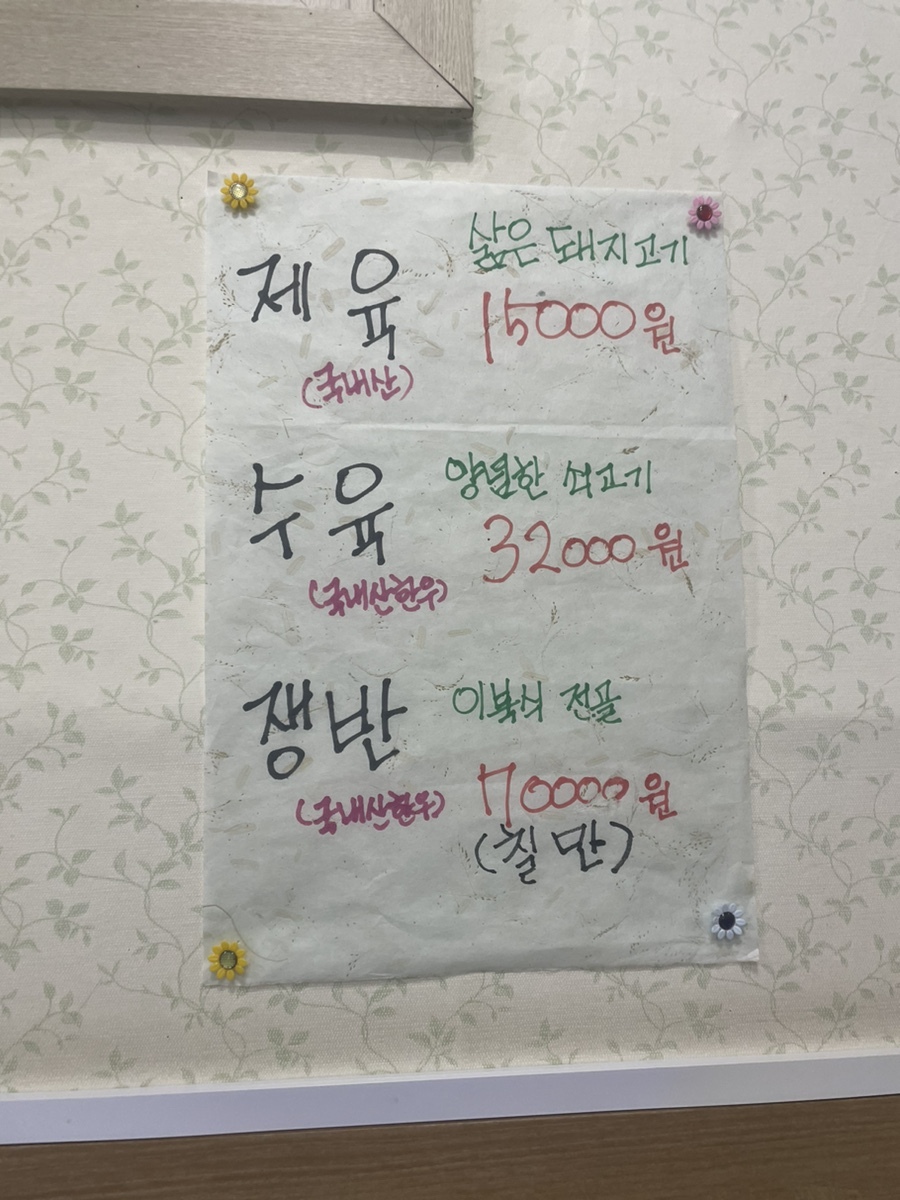 제육 삶은 돼지고기
15000원
(국내산)
수육 양념한 쇠고기
32000원
(국내산한우)
쟁반 이북식 전골
70000원
(국내산한우)
(칠만)